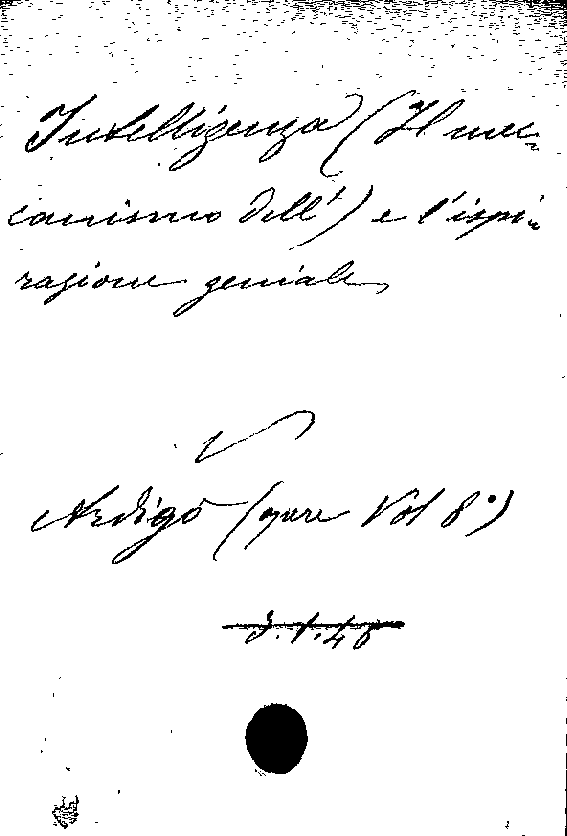 Intelligenza (Il mec-
canismo dell') e l'ispi-
razione geniale
V
Ardigò (opere Vol 8°)